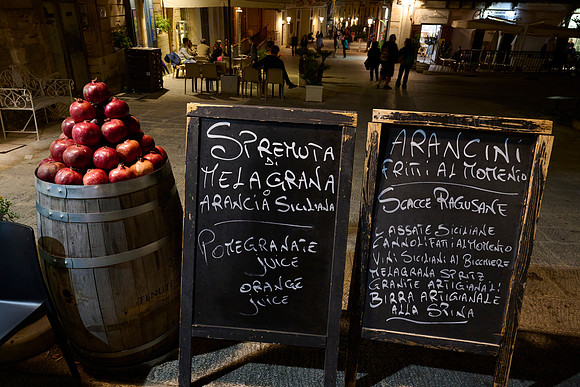 SPREMUTA
DI
MELAGRANA
O
ARANCIA SICILIANA
POMEGRANATE
JUICE
ORANGE
JUICE
ARANCINI
FRITTI AL MOMENTO
SCACCE RAGUSANE
CASSATE SICILIANE
CANNOLI FATTI AL MOMENTO
VINI SICILIANI AL BICCHIERE
MELAGRANA SPRITZ
GRANITE ARTIGIANALI
BIRRA ARTIGIANALE
ALLA SPINA